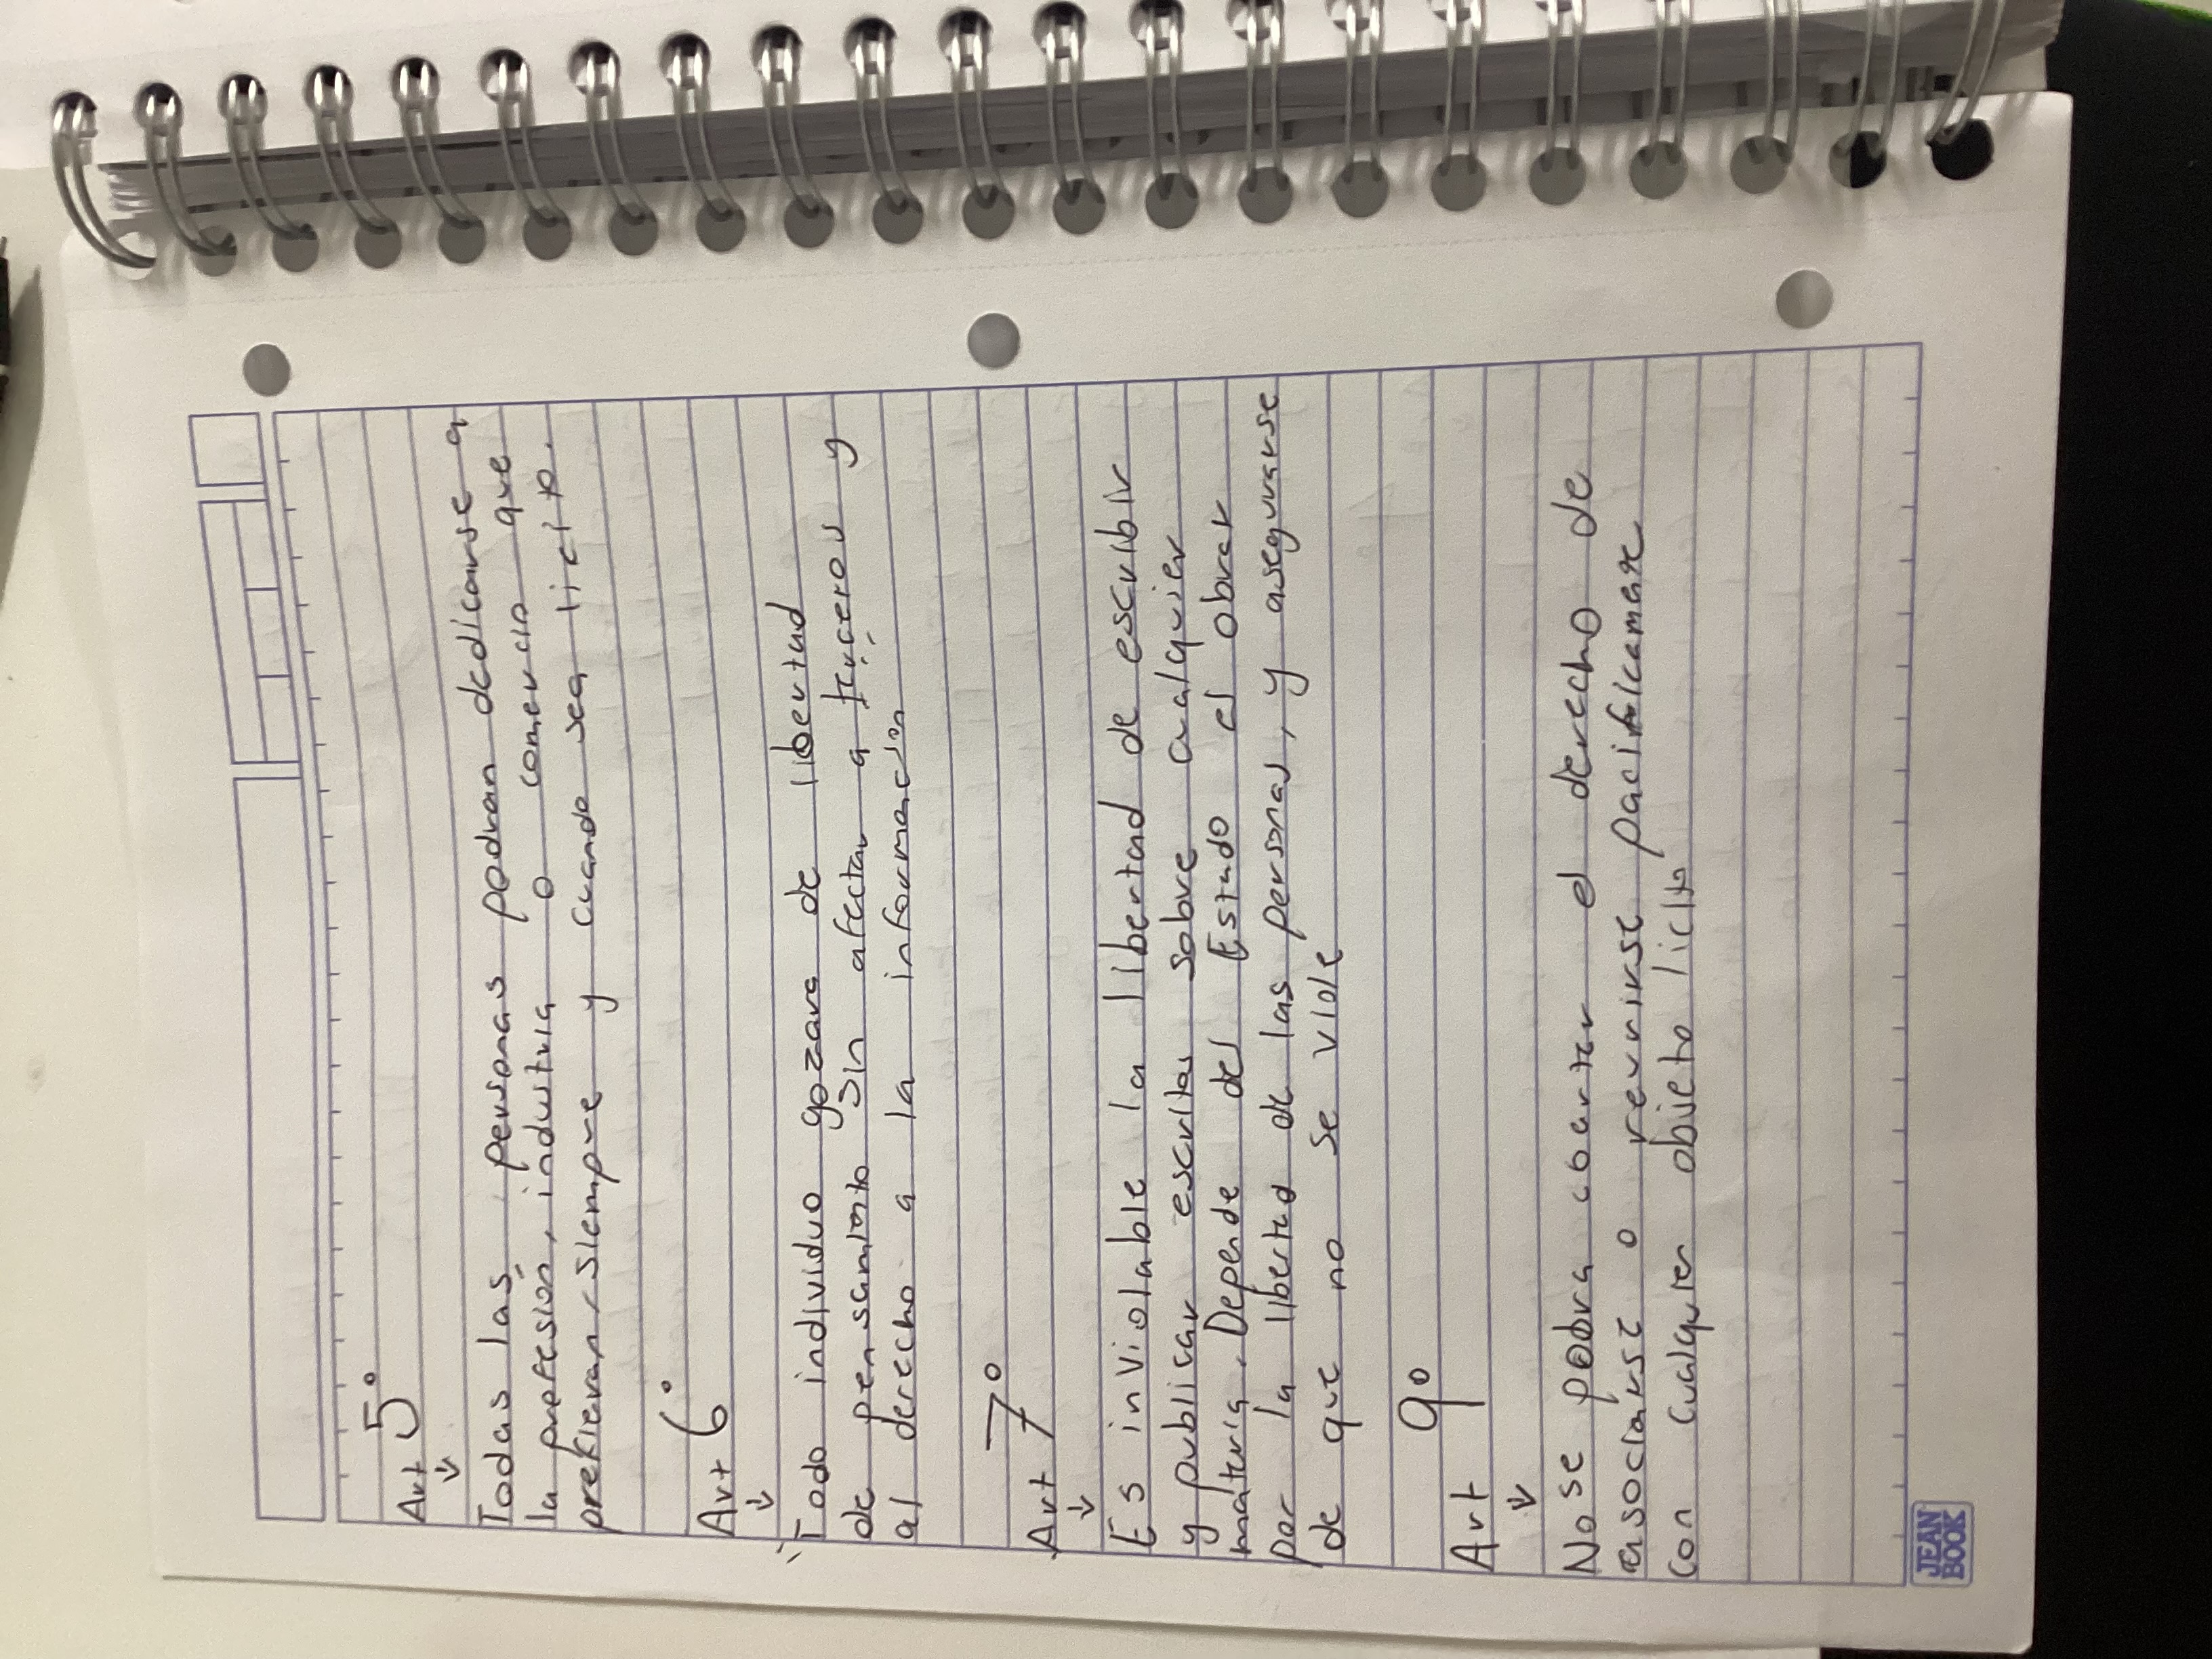 Art 5°
↓
Todas las personas podran dedicarse a
la profesión, industria o comercio que
prefieran, siempre y cuando sea licito.
Art 6°
↓
Todo individuo gozara de libertad
de pensamiento sin afectar a terceros y
al derecho a la información
Art 7°
↓
Es inviolable la libertad de escribir
y publicar escritas sobre cualquier
materia. Depende del Estado el obrar
por la libertad de las personas, y asegurarse
de que no se viole
Art 9°
↓
No se podra coarter el derecho de
asociarse o reunirse pacificamente
con cualquier objeto licito
JEAN
BOOK